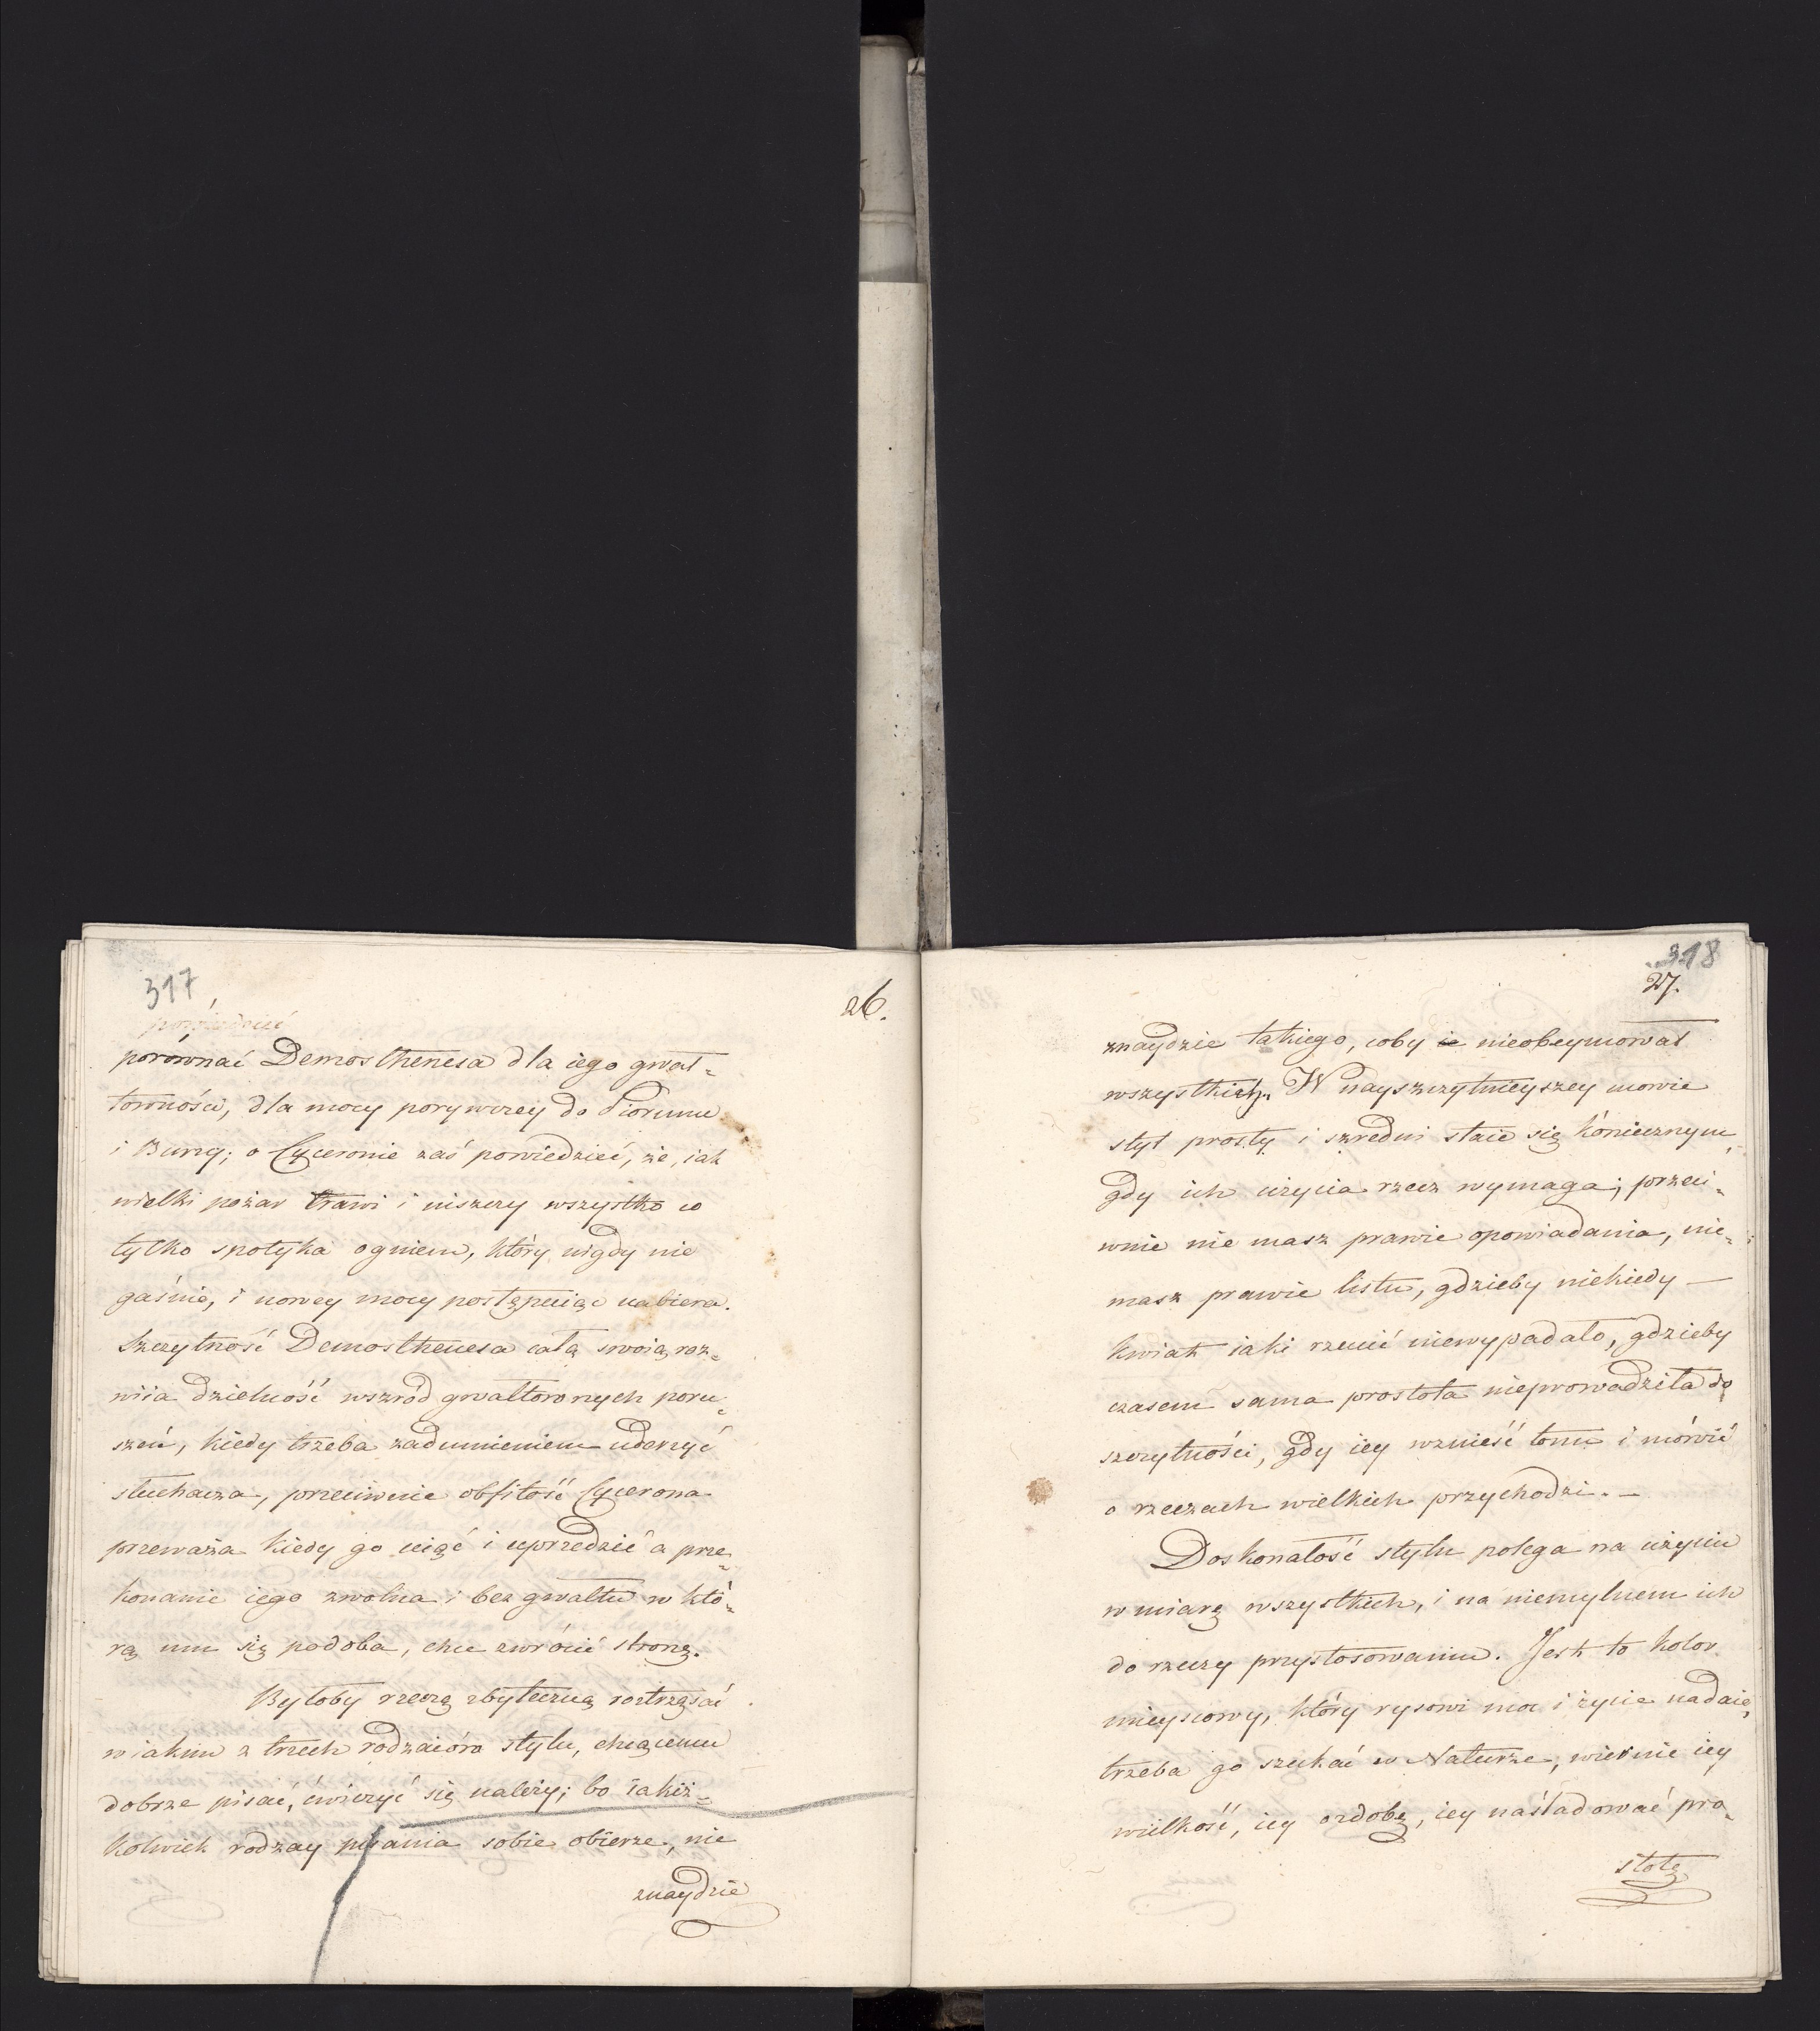 317
26.
powiedzieć
porównać Demosthenesa dla iego gwał=
towności, dla mocy porywczey do Piorunu
i Burzy; o Cyceronie zaś powiedzieć, że, iak
wielki pożar trawi i niszczy wszystko co
tylko spotyka ogniem, który nigdy nie
gaśnie, i nowey mocy postępuiąc nabiera.
Szczytność Demosthenesa całą swoią roz=
wiia dzielność wszród gwałtownych poru=
szeń, kiedy trzeba zadumieniem uderzyć
słuchacza, przeciwnie obfitość Cycerona
przeważa kiedy go uiąć i uprzedzić a prze=
konanie iego zwolna i bez gwałtu w któ=
rą mu się podoba, chce zwrócić stronę.
Byłoby rzeczą zbyteczną roztrząsać
w iakim z trzech rodzaiów stylu, chcącemu
dobrze pisać, ćwiczyć się należy; bo iakiż=
kolwiek rodzay pisania sobie obierze, nie
znaydzie
318
27.
znaydzie takiego, coby ie nieobeymował
wszystkich. W nayszczytnieyszey mowie
styl prosty i szredni staie się koniecznym,
gdy ich użycia rzecz wymaga; przeci=
wnie nie masz prawie opowiadania, nie=
masz prawie listu, gdzieby niekiedy —
kwiat iaki rzucić niewypadało, gdzieby
czasem sama prostota nieprowadziła do
szczytności, gdy iey wznieść tonu i mówić
o rzeczach wielkich przychodzi. —
Doskonałość stylu polega na użyciu
w miarę wszystkich, i na niemylnem ich
do rzeczy przystosowaniu. Jest to kolor
mieyscowy, który rysowi moc i życie nadaie,
trzeba go szukać w Naturze, wiernie iey
wielkość, iey ozdobę, iey naśladować pro=
stotę